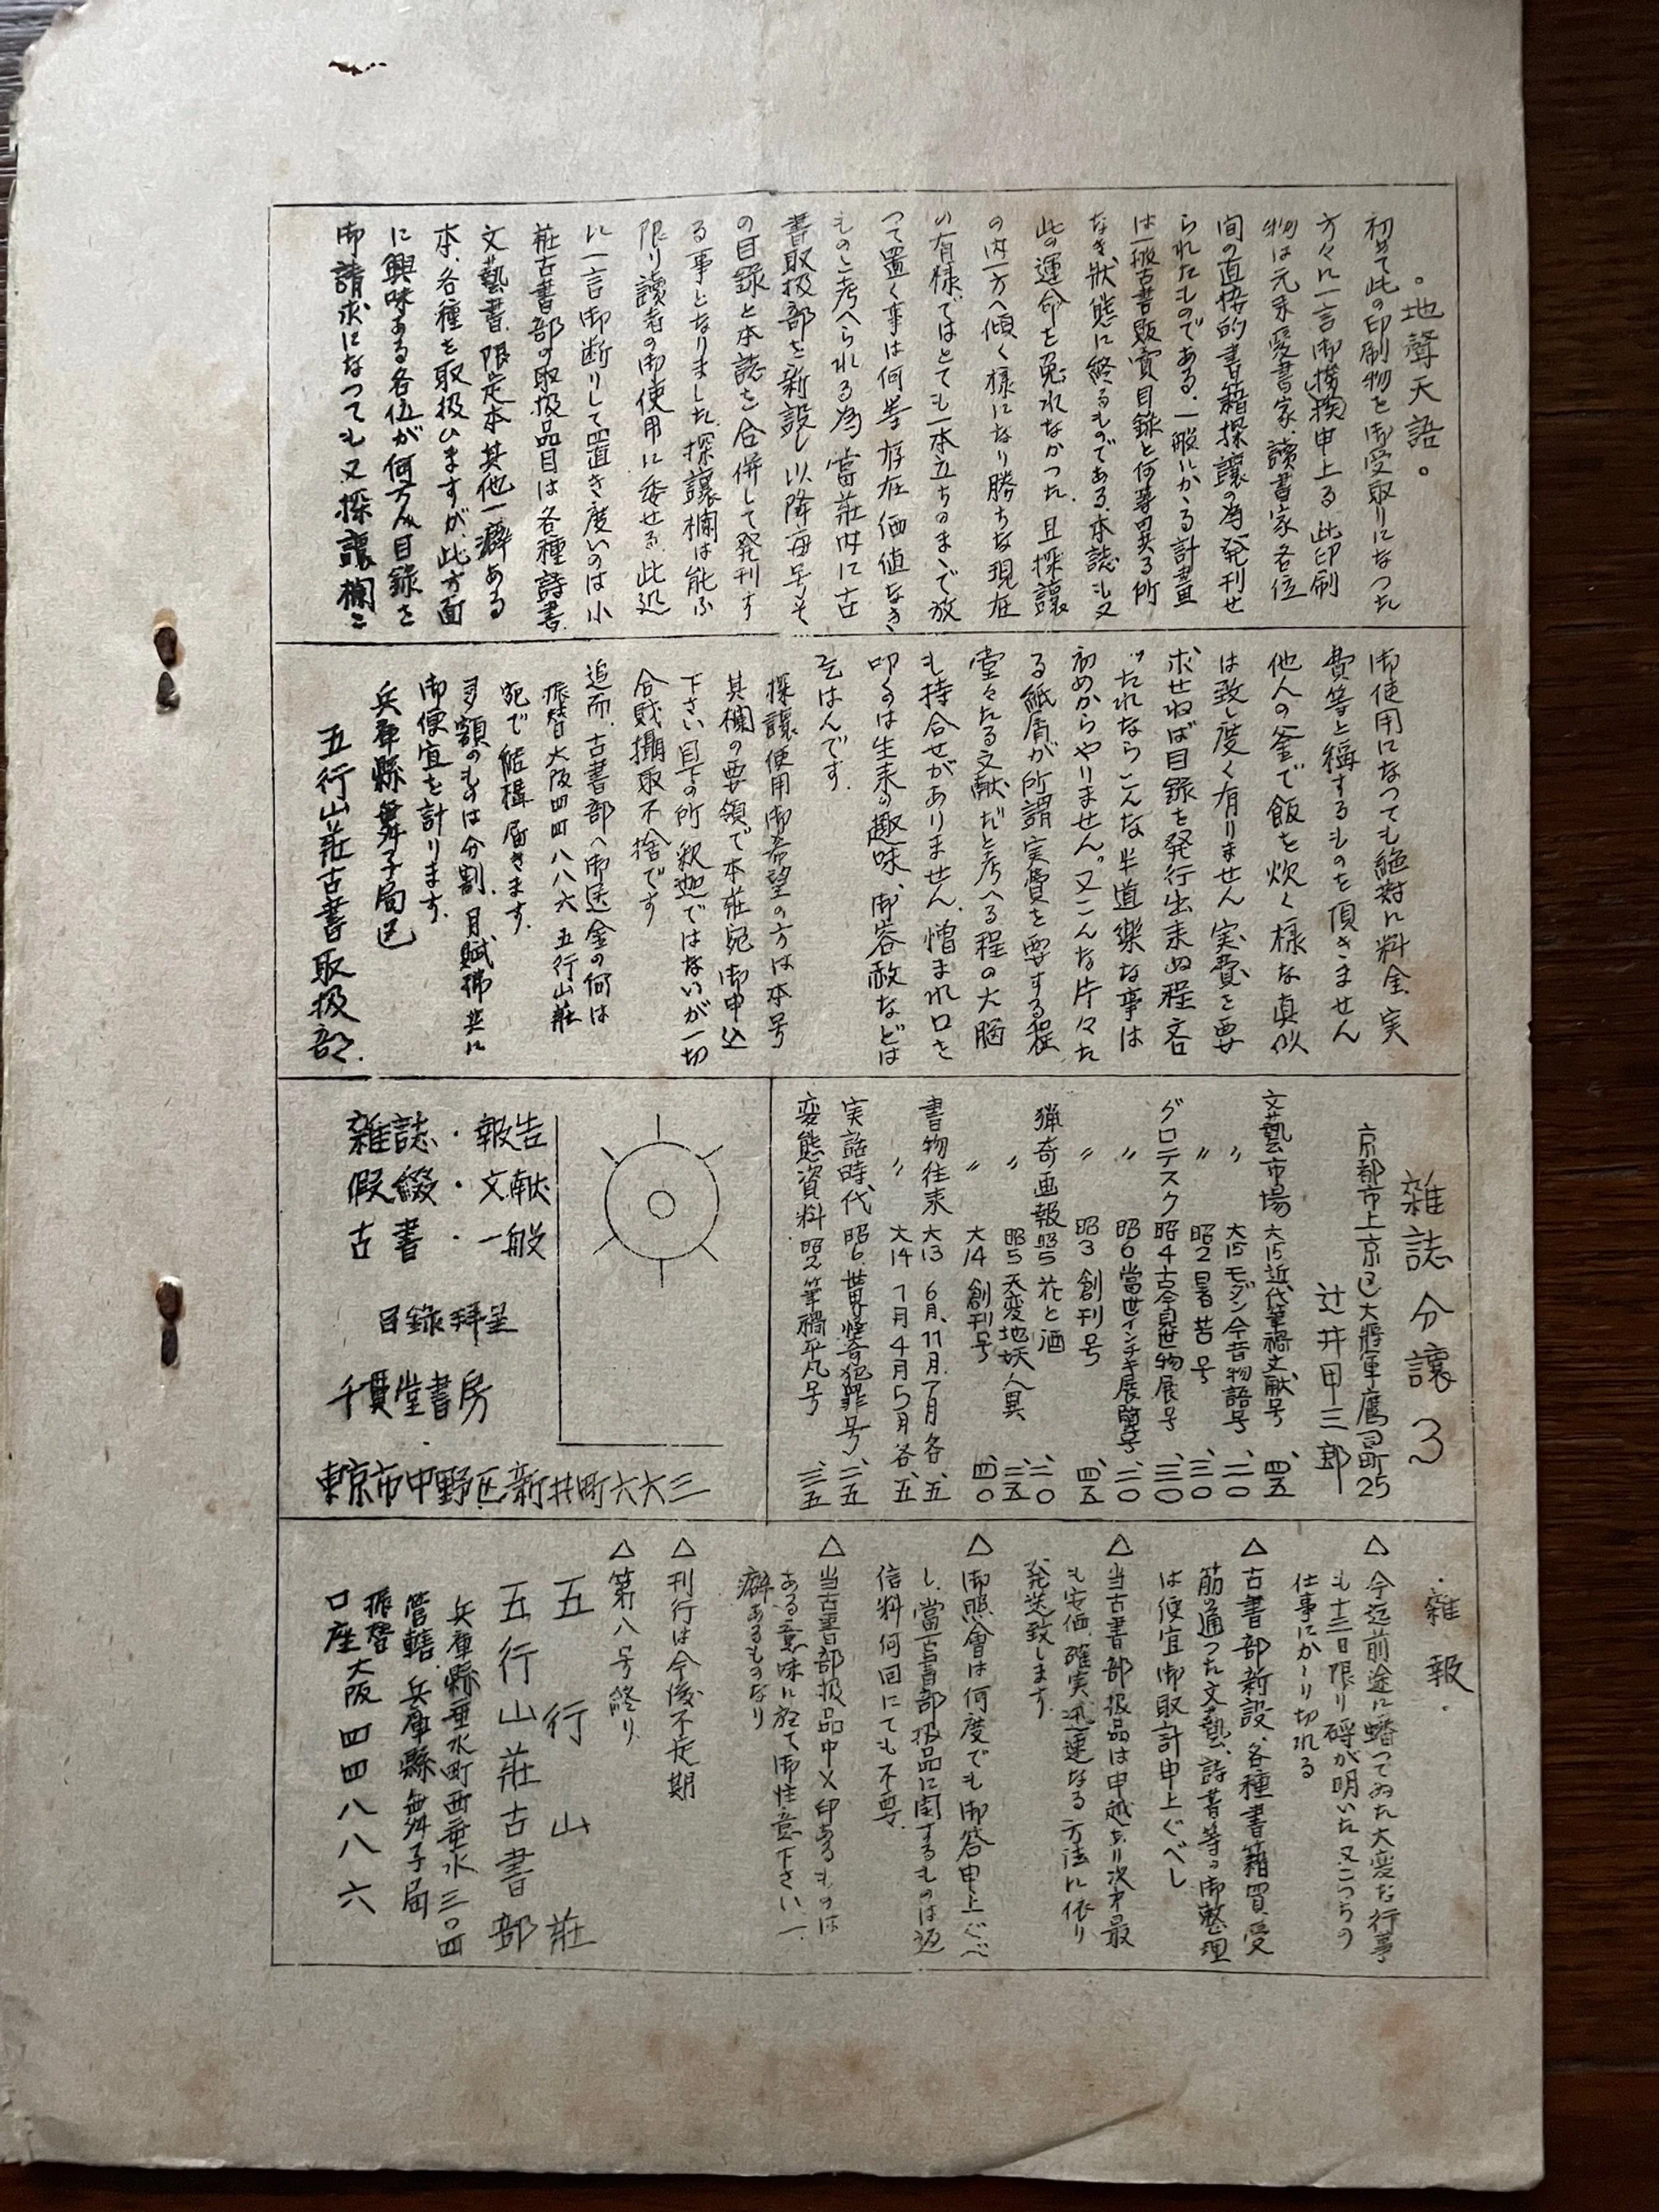 。地聲天語。
初めて此の印刷物を御受取りになつた
方々に一言御挨拶申上る。此印刷
物は元来愛書家、讀書家各位
間の直接的書籍探讓の為発刊せ
られたものである。一般にかゝる計畫
は一般古書販賣目録と何等異る所
なき状態に終るものである。本誌も又
此の運命を免れなかつた。且探讓
の内一方へ傾く様になり勝ちな現在
の有様ではとても一本立ちのまゝで放
つて置く事は何等存在価値なき
ものと考へられる為當莊内に古
書取扱部を新設し以降毎号そ
の目録と本誌を合併して発刊す
る事となりました。探讓欄は能ふ
限り讀者の御使用に委せる。此処
に一言御断りして置き度いのは小
莊古書部の取扱品目は各種詩書、
文藝書、限定本其他一癖ある
本、各種を取扱ひますが、此方面
に興味ある各位が何万人目録を
御請求になつても又探讓欄を
御使用になつても絶対に料金、実
費等と稱するものを頂きません
他人の釜で飯を炊く様な真似
は致し度く有りません 実費を要
求せねば目録を発行出来ぬ程吝
つたれならこんな半道楽な事は
初めからやりません。又こんな片々た
る紙屑が所謂実費を要する程
堂々たる文献だと考へる程の大脳
も持合せがありません。憎まれ口を
叩くのは生来の趣味、御容赦などは
乞はんです。
探讓使用御希望の方は本号
其欄の要領で本莊宛御申込
下さい 目下の所釈迦ではないが一切
合財攝取不捨です
追而、古書部へ御送金の何は
振替大阪四四八八六 五行山莊
宛で結構届きます。
多額のものは分割、月賦拂共に
御便宜を計ります。
兵庫縣舞子局区
五行山莊古書取扱部
雜誌分讓 3
京都市上京区大將軍鷹司町25
辻井甲三郎
文藝市場 大15近代筆禍文献号 、四五
〃 大15モダン今昔物語号 、二〇
〃 昭2暑苦号 、三〇
グロテスク 昭4古今見世物展号 、三〇
〃 昭6當世インチキ展覽号 、二〇
〃 昭3創刊号 、四五
猟奇画報 昭5花と酒 、二〇
〃 昭5天変地妖人異 、三五
〃 大14創刊号 、四〇
書物往来 大13 6月、11月、7月各、五
〃 大14 7月4月5月各、五
実話時代 昭6、世界怪奇犯罪号 、二五
変態資料 昭2筆禍平凡号 、三五
雜誌・報告
假綴・文献
古書・一般
目錄拜呈
千貫堂書房
東京市中野区新井町六六三
・雜報・
△今迄前途に蟠つてゐた大変な行事
も十三日限り埒が明いた 又こつちの
仕事にかゝり切れる
△古書部新設、各種書籍買受
筋の通つた文藝、詩書等の御整理
は便宜御取計申上ぐべし
△当古書部扱品は申越あり次才最
も安価、確実、迅速なる方法に依り
発送致します
△御照會は何度でも御答申上ぐべ
し、當古書部扱品に関するものは返
信料何回にても不要。
△当古書部扱品中×印あるものは
ある意味に於て御注意下さい一
癖あるものなり
△刊行は今後不定期
△第八号終り
五行山莊
五行山莊古書部
兵庫縣垂水町西垂水三〇四
管轄、兵庫縣舞子局
振替
口座 大阪四四八八六